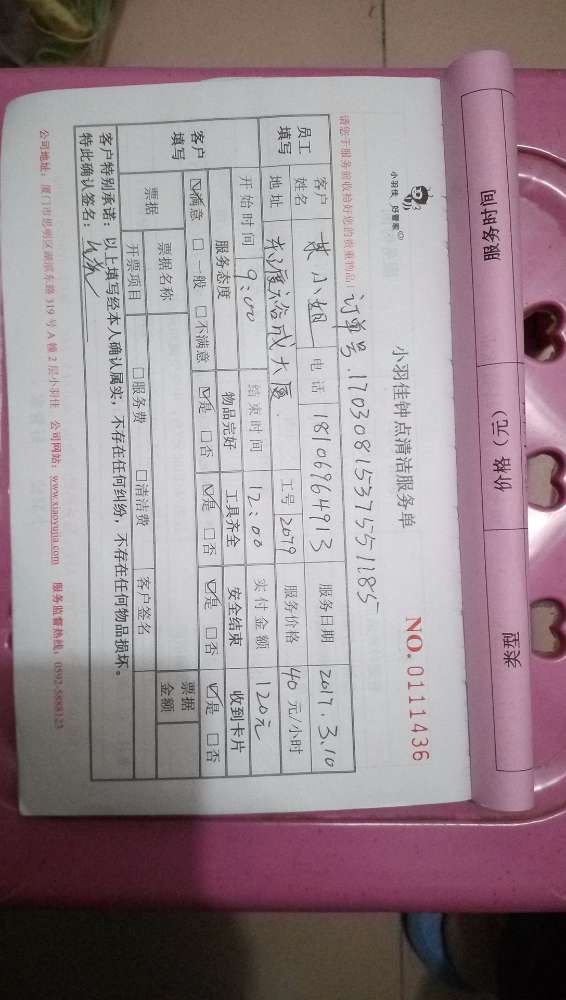 服务时间 价格（元） 类型
小羽佳 好管家
小羽佳钟点清洁服务单
NO. 0111436
请您于服务前收拾好您的贵重物品！
订单号.17030815375551185
员工填写
客户姓名 小姐 电话 18106964913 服务日期 2017.3.10
地址 东渡裕成大厦. 工号 2079 服务价格 40 元/小时
开始时间 9:00 结束时间 12:00 实付金额 120元
客户填写
服务态度 物品完好 工具齐全 安全结束 收到卡片
☑满意 □一般 □不满意 ☑是 □否 ☑是 □否 ☑是 □否 ☑是 □否
票据 票据名称 票据金额
开票项目 □服务费 □清洁费 客户签名
客户特别承诺：以上填写经本人确认属实，不存在任何纠纷，不存在任何物品损坏。
特此确认签名：
公司地址：厦门市思明区湖滨东路 319 号 A 幢 2 层小羽佳 公司网站：www.xiaoyujia.com 服务监督热线：0592-5888123